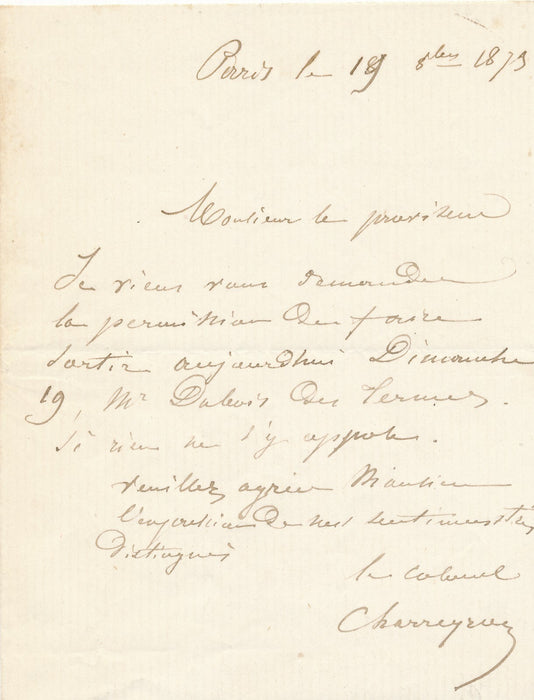 Paris le 19 8bre 1873
Monsieur le proviseur
Je viens vous demander
la permission de faire
sortir aujourdhui Dimanche
19, Mr Dubois des Termes.
Si rien ne s'y oppose.
veuillez agréer Monsieur
l'expression de mes sentiments très
distingués
le colonel